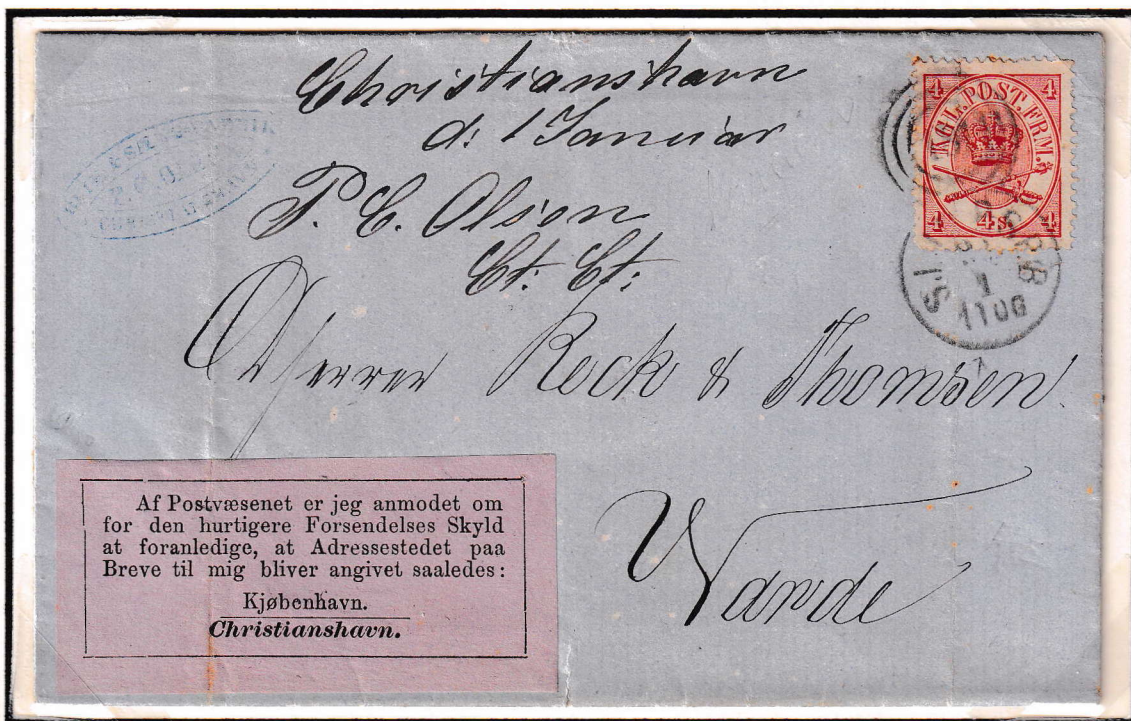 Christianshavn
d: 1 Januar
P. C. Olsen
Ct. Ct:
Herrer Rock & Thomsen
Varde
4 4
KGL. POST. FRM.
4 4s. 4
1
1106
Af Postvæsenet er jeg anmodet om
for den hurtigere Forsendelses Skyld
at foranledige, at Adressestedet paa
Breve til mig bliver angivet saaledes:
Kjøbenhavn.
Christianshavn.